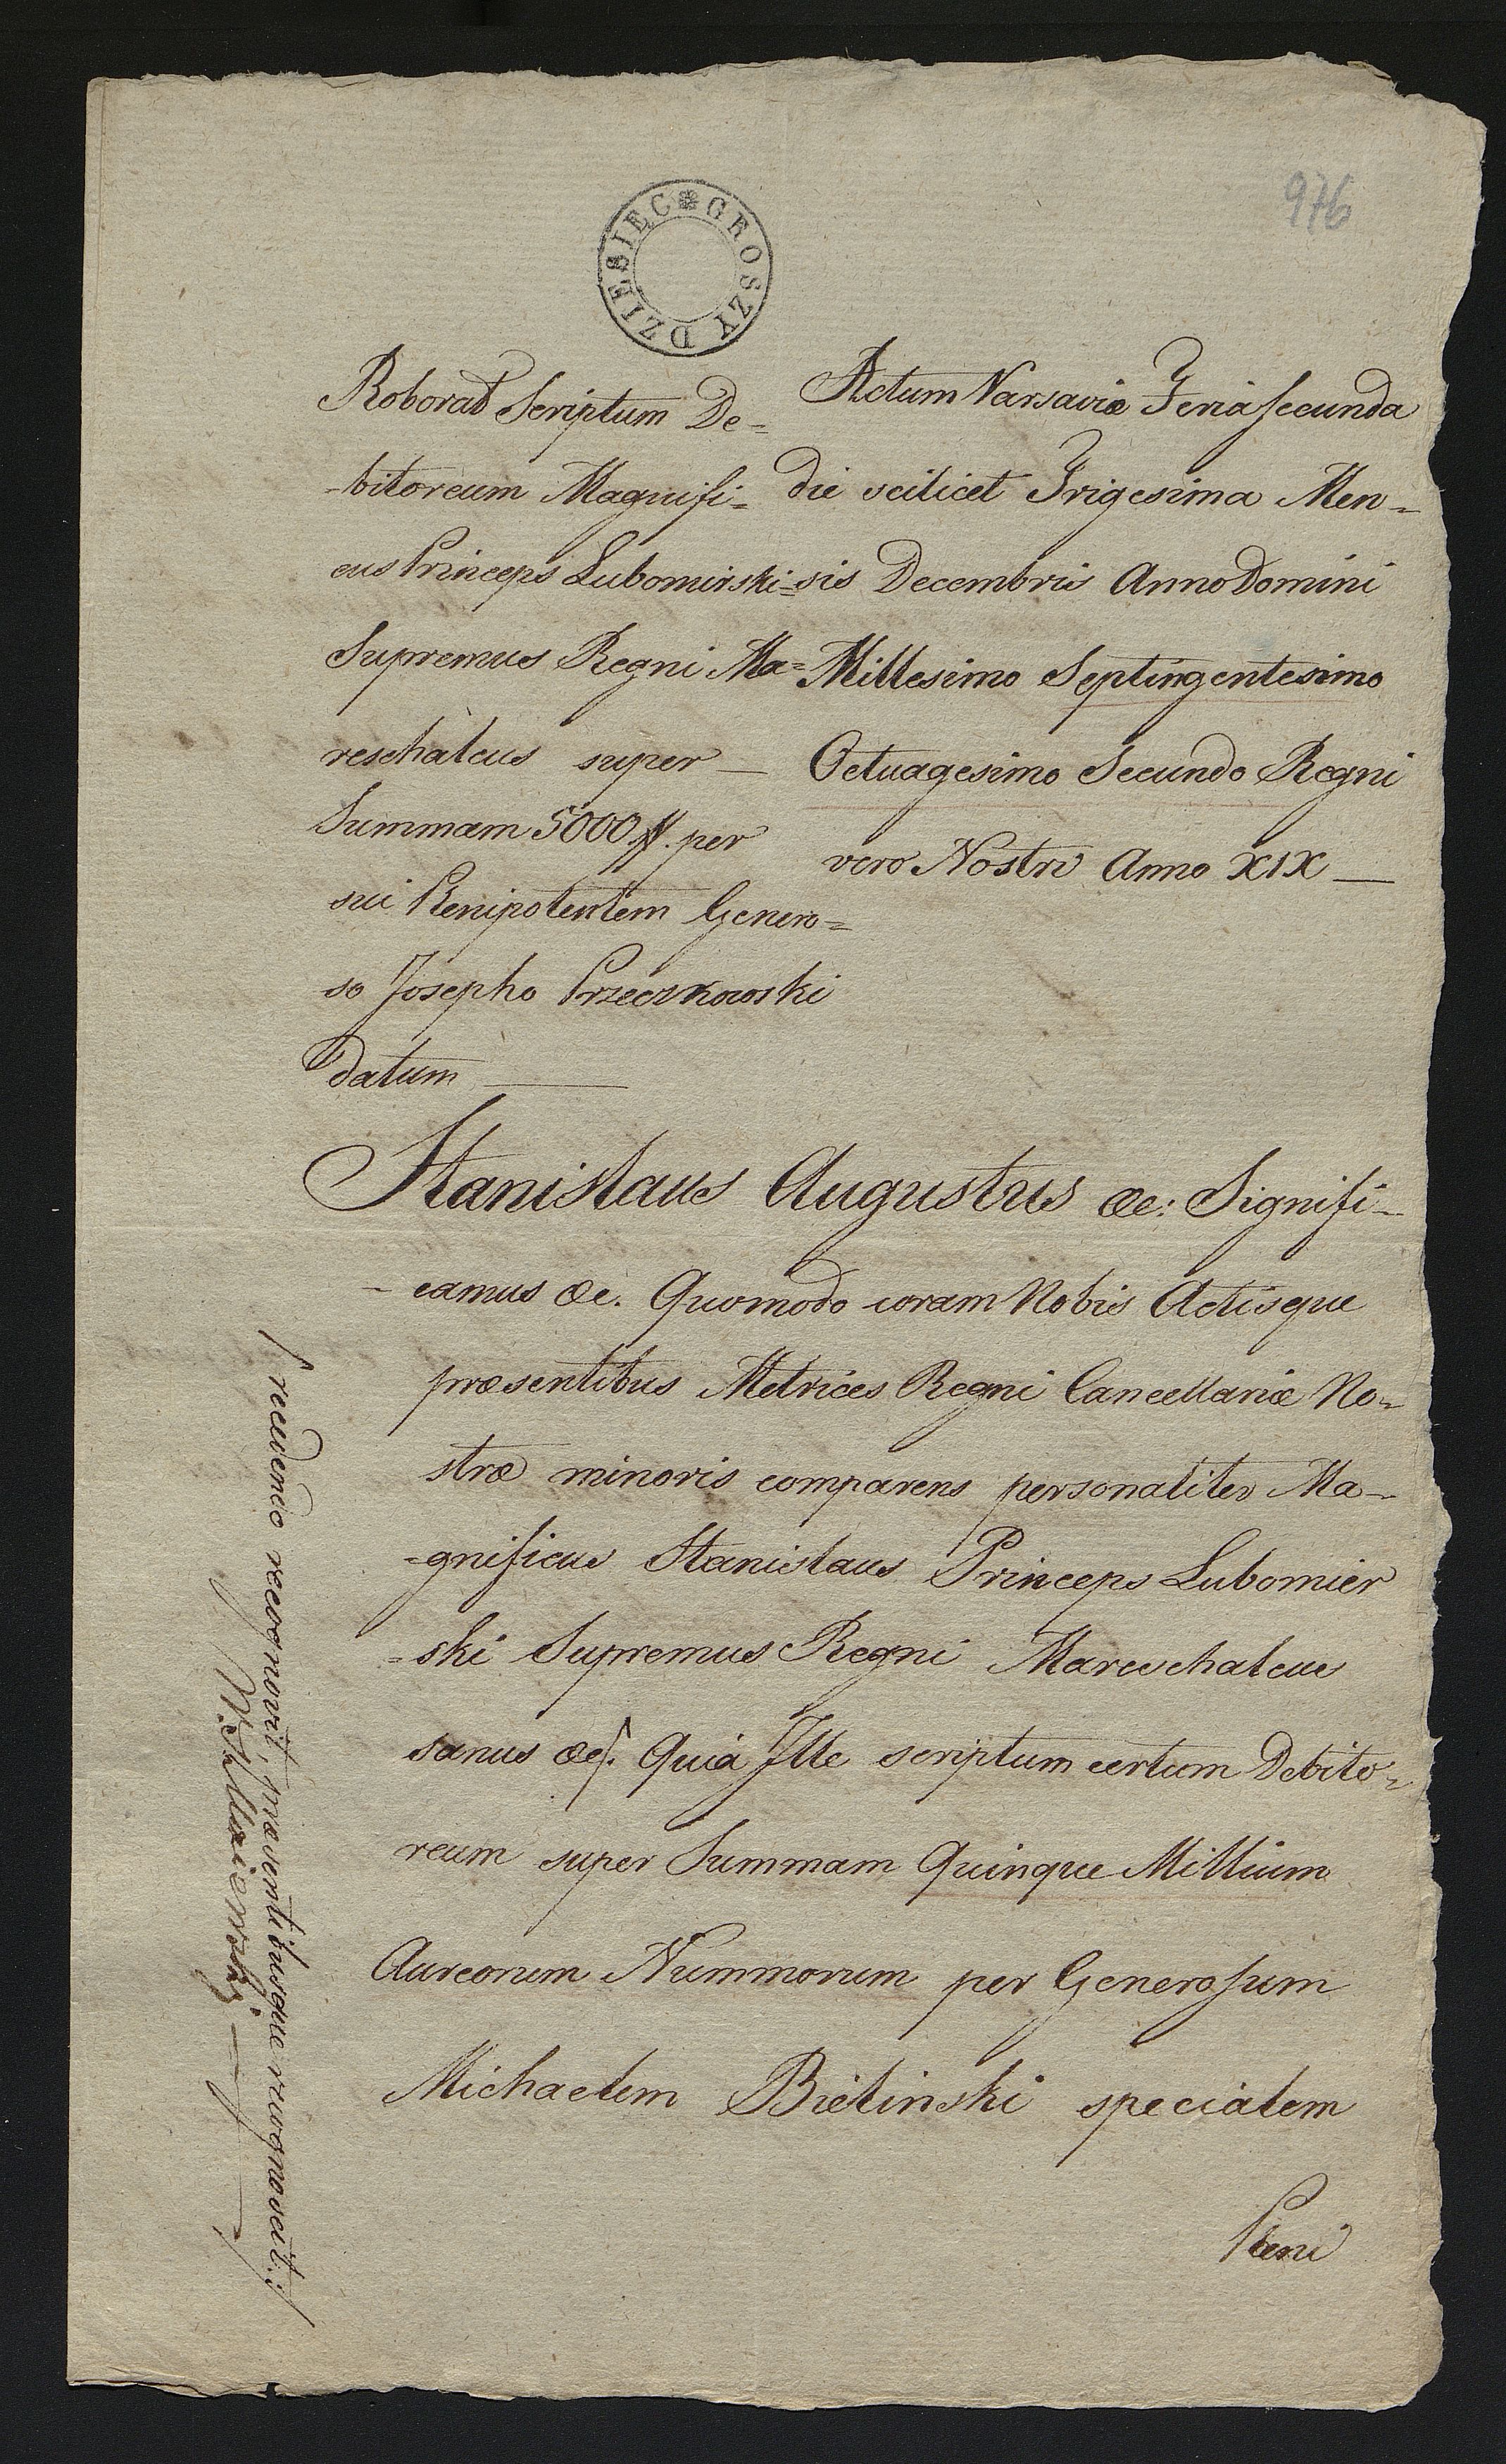 976
DZIESIĘC GROSZY
Roborat Scriptum De=
-bitoreum Magnifi=
cus Princeps Lubomirski=
Supremus Regni Ma=
reschalcus super —
Summam 5000 #. per
sui Plenipotentem Genero=
so Josepho Przeczkowski
datum —
Actum Varsaviæ Feria secunda
die scilicet Trigesima Men=
sis Decembris Anno Domini
Millesimo Septingentesimo
Octuagesimo Secundo Regni
vero Nostri Anno XIX —
Stanislaus Augustus &c: Signifi-
- camus &c. Quomodo coram Nobis Actisque
præsentibus Metrices Regni Cancellariæ No=
stræ minoris comparens personaliter Ma-
=gnificus Stanislaus Princeps Lubomier
=ski Supremus Regni Mareschalcus
sanus &c ſ. Quia Ille scriptum certum Debito=
reum super Summam Quinque Millium
Aureorum Nummorum per Generosum
Michaelem Bielinski specialem
Pleni
ſ recenter recognovit, præsentibusque recognoscit :/